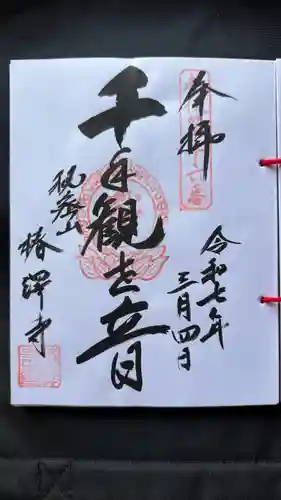 奉拝
令和七年
三月四日
千手観世音
椿澤寺